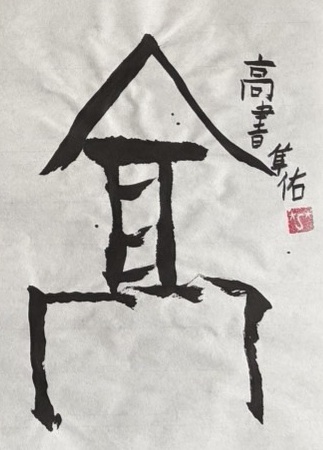 高
高書
佑